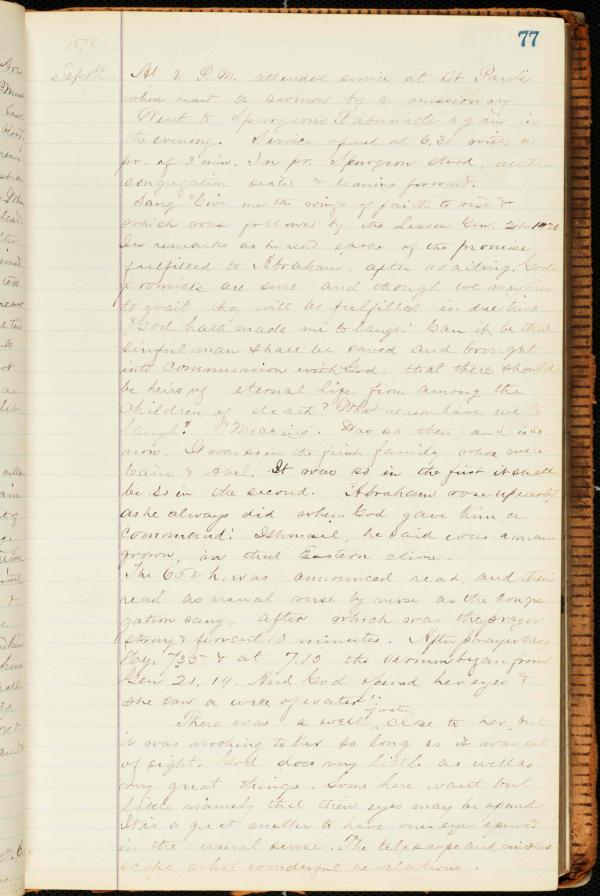 77
1878.
Sep 1st At 2 P.M. attended service at St. Paul's
where heard a sermon by a missionary.
Went to Spurgeon's Tabernacle again in
the evening. Service opened at 6.30 with a
pr. of 3 min. In pr. Spurgeon stood, all the
congregation seated & leaning forward.
Sang "Give me the wings of faith to rise" &
which was followed by the Lesson Gen. 21
In remarks as he read spoke of the promise
fulfilled to Abraham, after waiting. God's
promises are sure and though we may have
to wait they will be fulfilled in due time.
"God hath made me to laugh." Can it be that
sinful man shall be saved and brought
into communion with God. that there should
be heirs of eternal life from among the
children of death? What reason have we to
laugh? "Mocking". Was so then, and is so
now. It was so in the first family where were
Cain & Abel. It was so in the first it shall
be so in the second. "Abraham rose up early"
as he always did when God gave him a
command. Ishmael, he said was a man
grown, in that Eastern clime.
The 652 h. was announced read, and then
read as usual verse by verse as the congre-
gation sang, after which was the prayer
strong & fervent 10 minutes. After prayer sang
Hy. 735 & at 7.10 the sermon began from
Gen 21. 19. And God opened her eyes &
she saw a well of water".
There was a well close to her, but
it was nothing to her so long as it was out
of sight. God does very little as well as
very great things. Some here want but
little namely that their eyes may be opened.
It is a great matter to have one's eyes opened
in the usual sense. The telescope and micro-
scope what wonderful revelations.